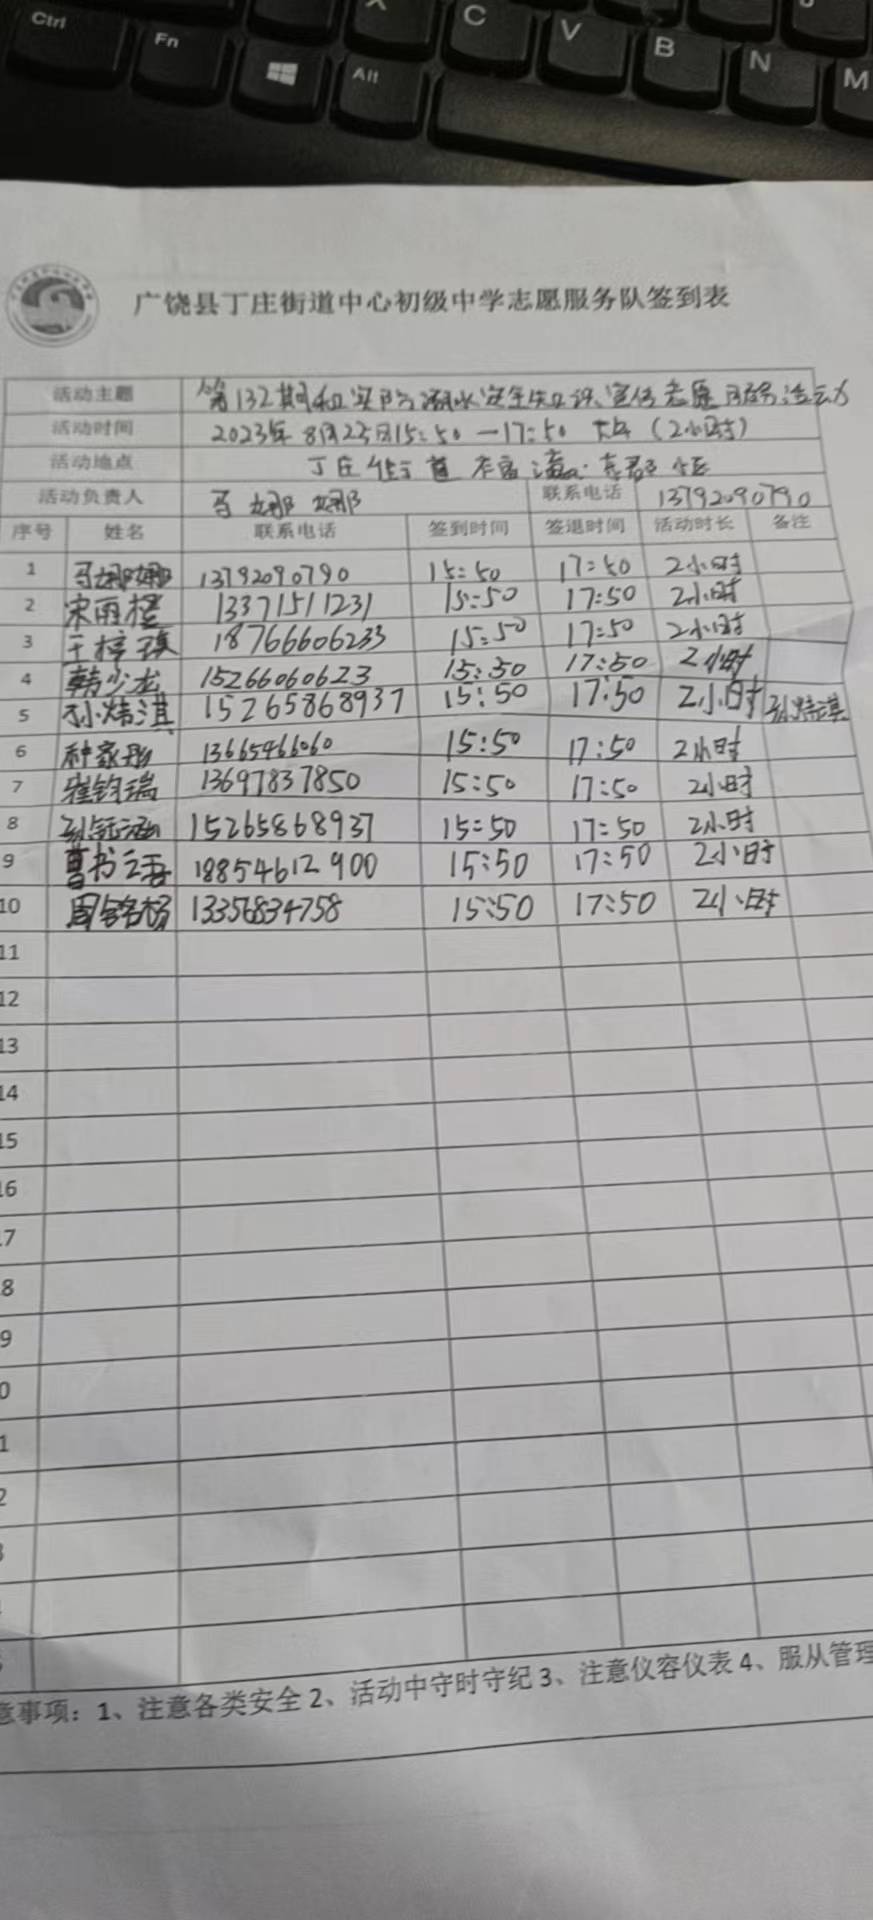 Ctrl
Fn
Alt
X C V B N M
广饶县丁庄街道中心初级中学志愿服务队签到表
活动主题 第132期和实防溺水安全知识宣传志愿服务活动
活动时间 2023年8月23日15:50—17:50 (2小时)
活动地点 丁庄街道
活动负责人 马娜娜 联系电话 13792090790
序号 姓名 联系电话 签到时间 签退时间 活动时长 备注
1 马娜娜 13792090790 15:50 17:50 2小时
2 宋雨橙 13371511231 15:50 17:50 2小时
3 王梓琪 18766606233 15:50 17:50 2小时
4 韩少龙 15266060623 15:50 17:50 2小时
5 孙炜淇 15265868937 15:50 17:50 2小时 孙炜淇
6 种家彤 13665466060 15:50 17:50 2小时
7 崔钧瑞 13697837850 15:50 17:50 2小时
8 孙钰涵 15265868937 15:50 17:50 2小时
9 曹书语 18854612900 15:50 17:50 2小时
10 周铭杨 13356834758 15:50 17:50 2小时
11
12
13
14
15
16
17
8
9
0
1
2
3
意事项：1、注意各类安全 2、活动中守时守纪 3、注意仪容仪表 4、服从管理